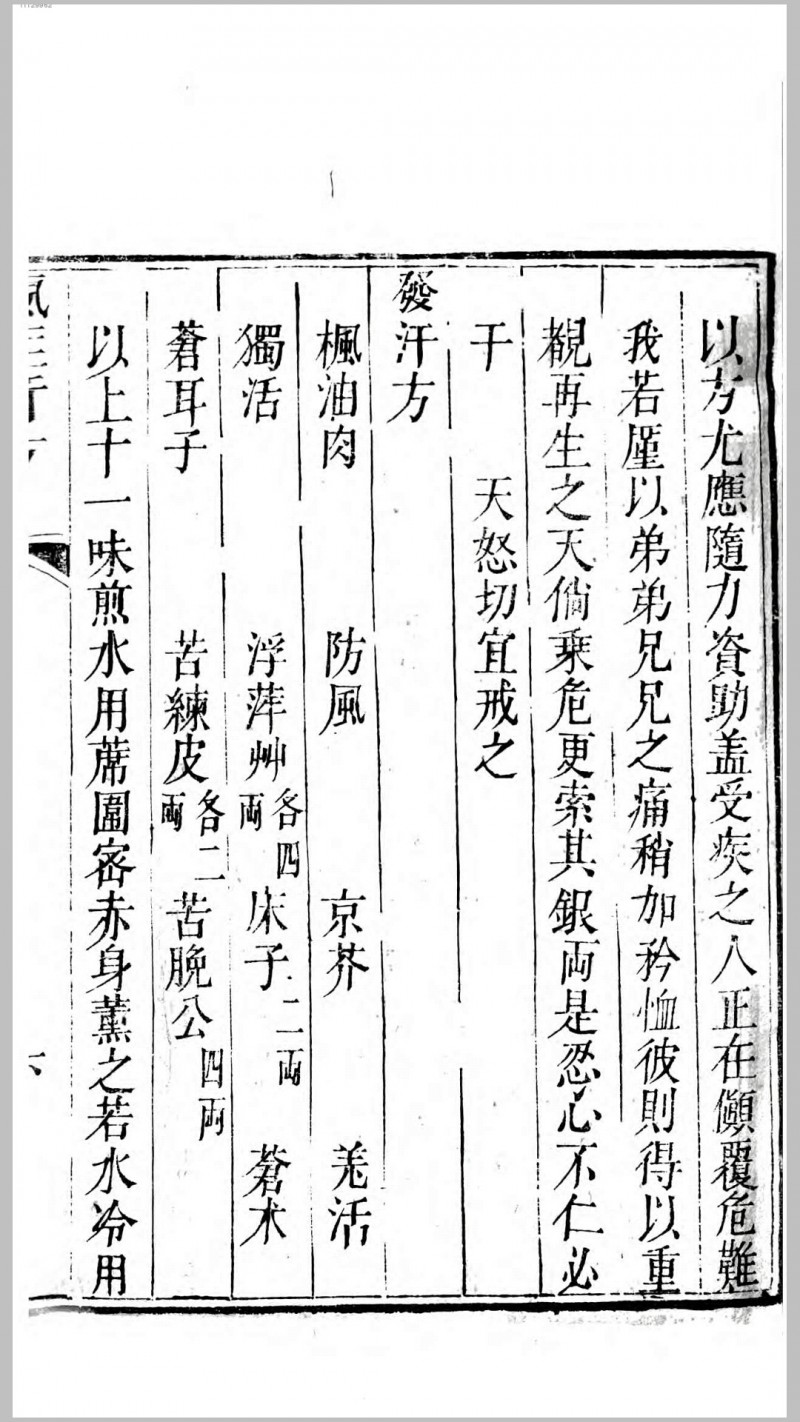 以方尤應隨力資助盖受疾之人正在傾覆危難
我若厪以弟弟兄兄之痛稍加矜恤彼則得以重
覩再生之天倘乘危更索其銀両是忍心不仁必
干　天怒切宜戒之
發汗方
楓油肉　防風　京芥　羌活
獨活　浮萍艸各四両　床子二両　蒼术
蒼耳子　苦練皮各二両　苦晩公四両
以上十一味煎水用蓆圍密赤身薰之若水冷用